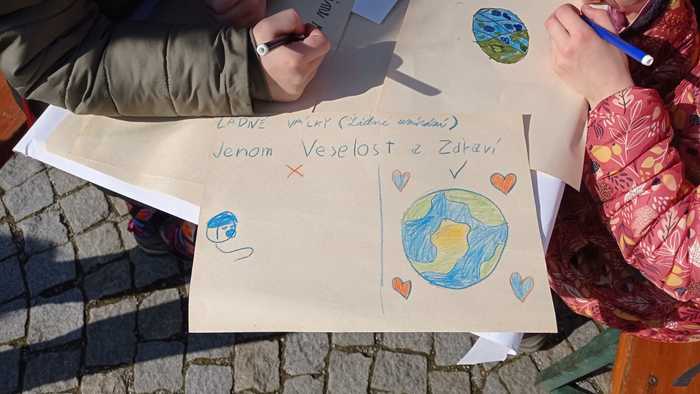 ŽÁDNÉ VÁLKY (Žádné umírání)
Jenom Veselost a Zdraví